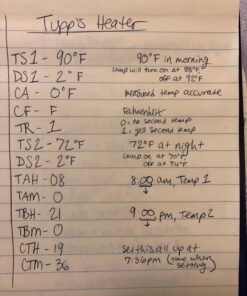 Tupp's Heater
TS1 - 90°F 90°F in morning
DS1 - 2°F Lamp will turn on at 88°F,
off at 92°F
CA - 0°F measured temp accurate
CF - F Fahrenheit
TR - 1 0 = no second temp
1 = yes second temp
TS2 - 72°F 72°F at night
DS2 - 2°F Lamp on at 70°F
off at 74°F
TAH - 08 8:00 am, Temp 1
TAM - 0
TBH - 21 9:00 pm, Temp 2
TBM - 0
CTH - 19 set this all up at
CTM - 36 7:36pm (time when
setting)